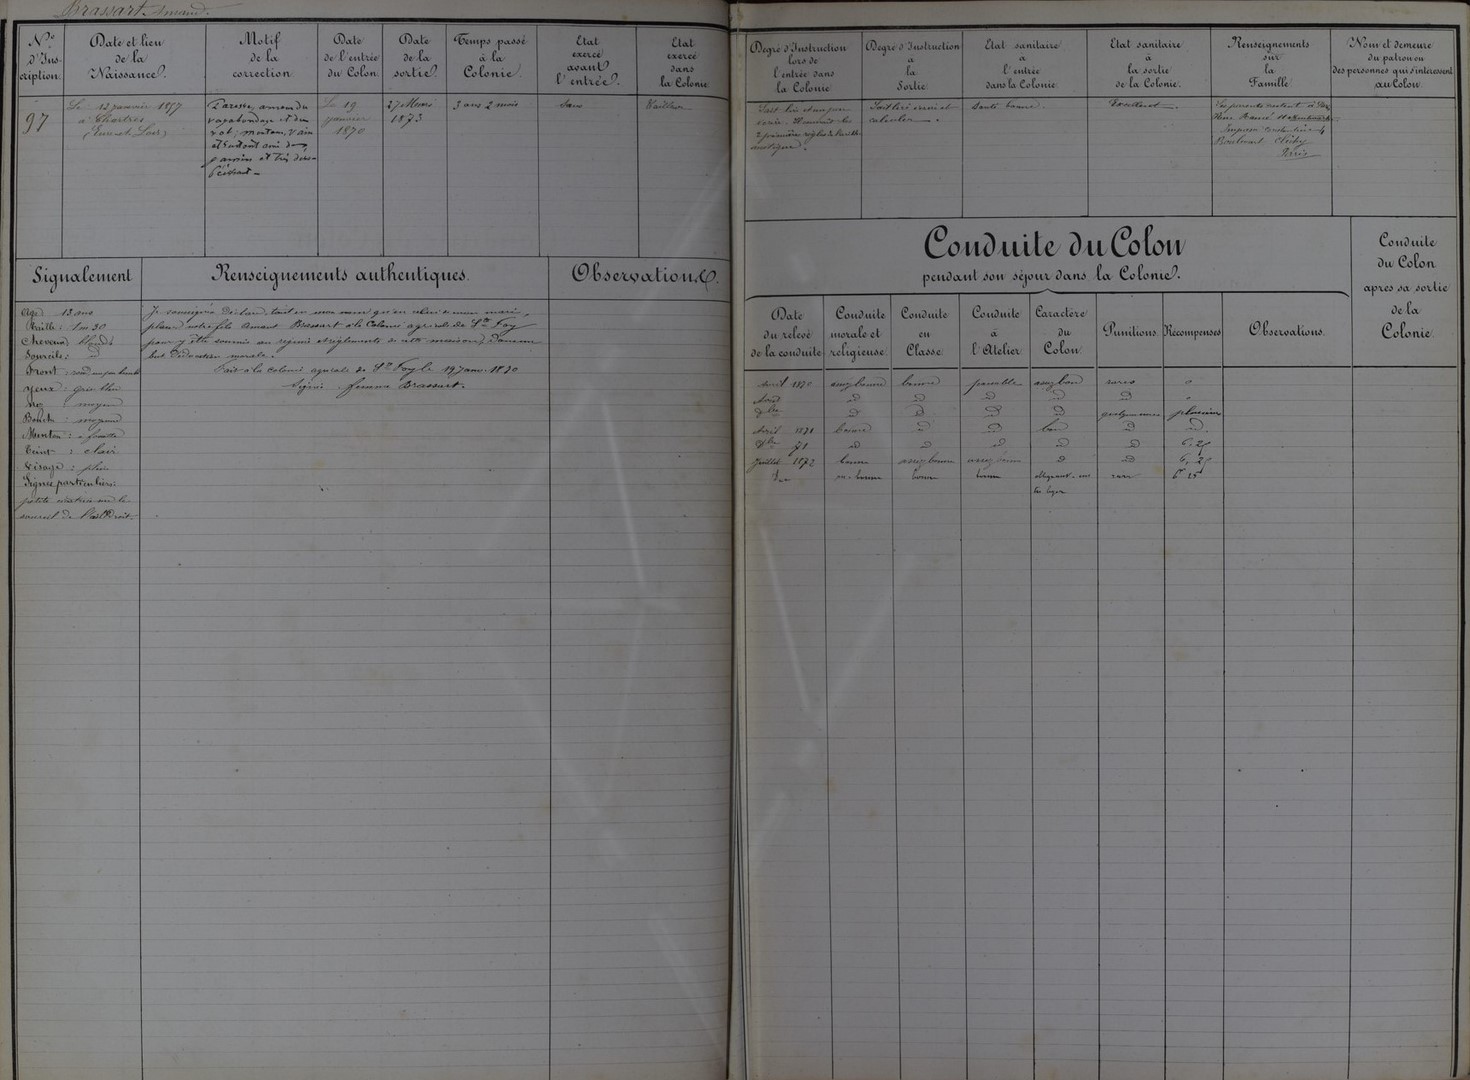 Brassart Amand.
N° d'Inscription.
Date et lieu de la Naissance.
Motif de la correction
Date de l'entrée du Colon.
Date de la sortie.
Temps passé à la Colonie.
Etat exercé avant l'entrée.
Etat exercé dans la Colonie
97
Le 12 janvier 1857
à Chartres
(Eure et Loir)
Paresse, amour du
vagabondage et du
vol, menteur, vain
et surtout ami des
Le 19
janvier
1870
27 Mars
1873
3 ans 2 mois
Sans
Tailleur
Signalement
Renseignements authentiques.
Observations.
Age 13 ans
Taille : 1m 30
Cheveux blonds
Sourcils : d°
Front :
Yeux : gris bleu
Nez : moyen
Bouche : moyenne
Menton : à fossette
Teint : clair
Visage : plein
Signes particuliers :
petite cicatrice sur le
sourcil de l'œil droit.
Je soussignée déclare, tant en mon nom qu'en celui de mon mari,
placer notre fils Amant Brassart à la Colonie agricole de Ste Foy
pour y être soumis au régime et règlements de cette maison, dans un
but d'éducation morale.
Fait à la colonie agricole de Ste Foy le 19 janv. 1870
Signé femme Brassart.
Degré d'Instruction lors de l'entrée dans la Colonie
Degré d'Instruction à la Sortie
Etat sanitaire à l'entrée dans la Colonie
Etat sanitaire à la sortie de la Colonie.
Renseignements sur la Famille
Nom et demeure du patron ou des personnes qui s'intéressent au Colon.
Sait lire et un peu
écrire. Il connaît les
2 premières règles de l'arith-
métique.
Sait lire écrire et
calculer.
Santé bonne.
Excellent.
Ses parents restent à
Impasse
Boulevart Clichy
Paris
Conduite du Colon
pendant son séjour dans la Colonie.
Conduite du Colon après sa sortie de la Colonie.
Date du relevé de la conduite
Conduite morale et religieuse
Conduite en Classe
Conduite à l'Atelier
Caractère du Colon
Punitions.
Récompenses
Observations.
Avril 1870 assez bonne bonne passable assez bon rares "
Août d° d° d° d° d° "
Xbre d° d° d° d° quelques unes plusieurs
Avril 1871 bonne d° d° bon d° d°
Xbre 71 d° d° d° d° d° 6, 25
Juillet 1872 bonne assez bonne assez bonne d° d° 6, 25
Xbre m. bonne bonne bonne rares 6f 25